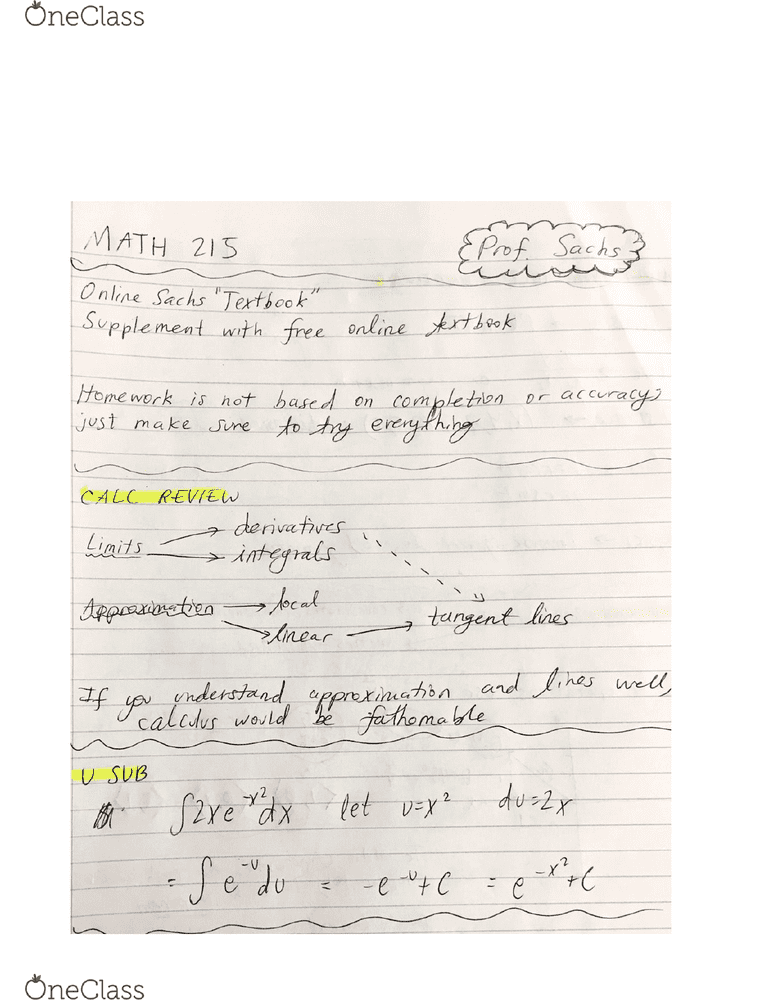 OneClass
MATH 215
Prof. Sachs
Online Sachs "Textbook"
Supplement with free online textbook
Homework is not based on completion or accuracy;
just make sure to try everything
CALC REVIEW
Limits → derivatives
→ integrals
Approximation → local
→ linear → tangent lines
If you understand approximation and lines well,
calculus would be fathomable
U SUB
∫2xe^-x² dx let u=x² du=2x
= ∫e^-u du = -e^-u + C = e^-x² + C
OneClass